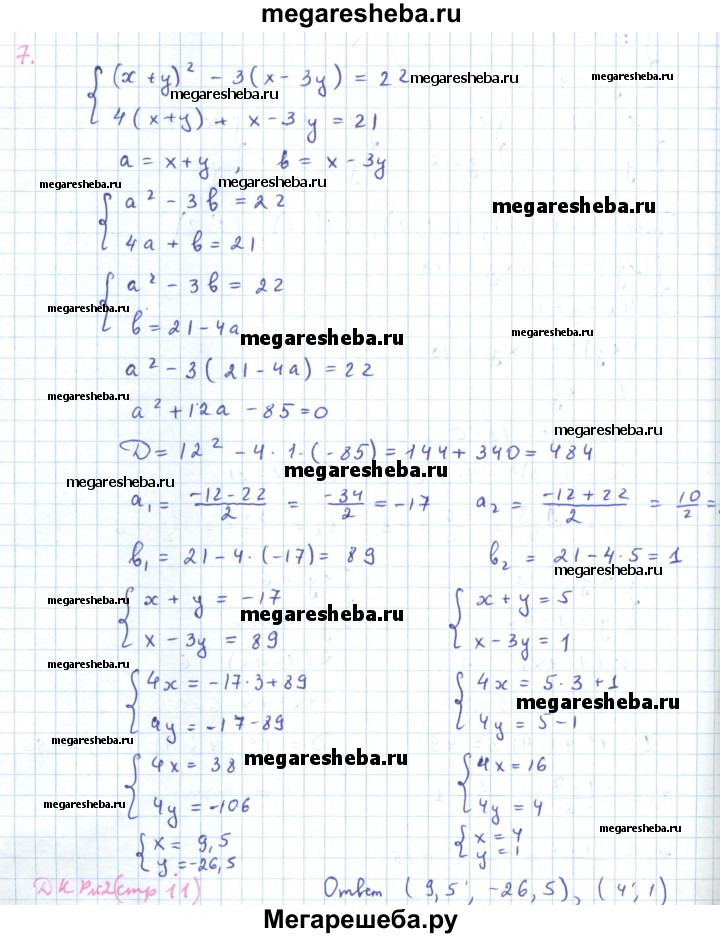 megaresheba.ru
7.
(x + y)² - 3(x - 3y) = 22 megaresheba.ru megaresheba.ru
megaresheba.ru
4(x+y) + x-3y = 21
a = x+y , b = x - 3y
megaresheba.ru megaresheba.ru
a² - 3b = 22
megaresheba.ru
4a + b = 21
a² - 3b = 22
megaresheba.ru
b = 21 - 4a
megaresheba.ru megaresheba.ru
a² - 3(21 - 4a) = 22
megaresheba.ru
a² + 12a - 85 = 0
megaresheba.ru
D = 12² - 4 · 1 · (-85) = 144 + 340 = 484
megaresheba.ru
megaresheba.ru
a₁ = (-12-22)/2 = -34/2 = -17 a₂ = (-12+22)/2 = 10/2 =
b₁ = 21 - 4 · (-17) = 89 b₂ = 21 - 4 · 5 = 1
megaresheba.ru
megaresheba.ru x + y = -17 x + y = 5
megaresheba.ru
x - 3y = 89 x - 3y = 1
megaresheba.ru
4x = -17·3+89 4x = 5·3+1
megaresheba.ru
4y = -17-89 4y = 5-1
megaresheba.ru
megaresheba.ru
4x = 38 4x = 16
megaresheba.ru
4y = -106 4y = 4
megaresheba.ru
x = 9,5 x = 4
y = -26,5 y = 1
ДКР№2(стр 11) Ответ (9,5; -26,5), (4; 1)
Мегарешеба.ру